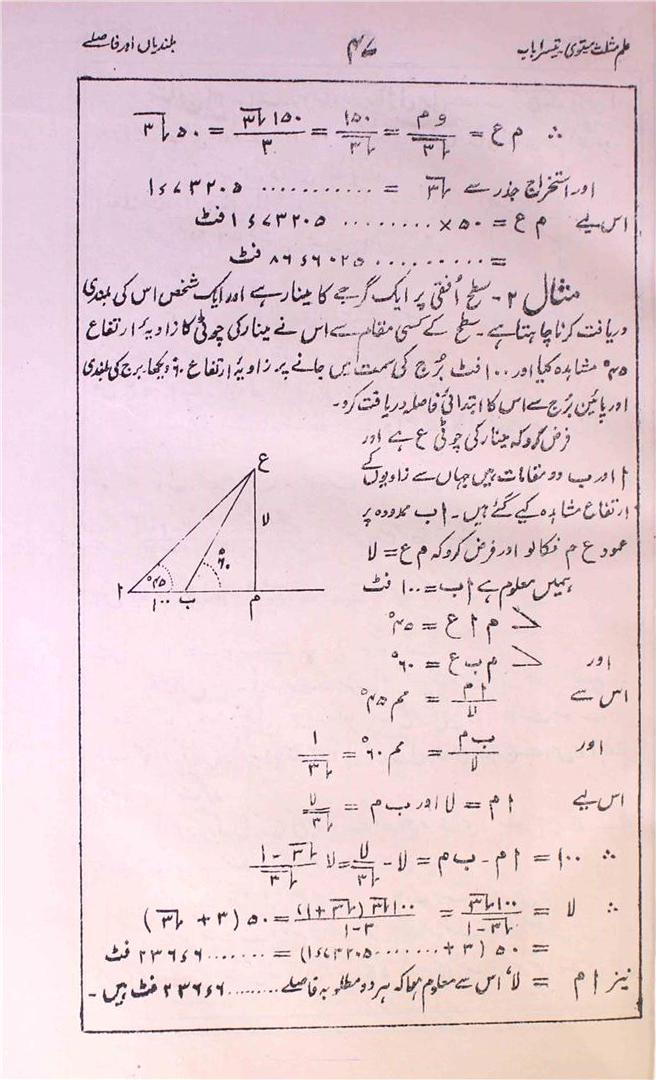 علم مثلث مستوی۔ تیسرا باب ۴۷ بلندیاں اور فاصلے
∴ م ع = و م / √۳ = ۱۵۰ / √۳ = ۱۵۰ √۳ / ۳ = ۵۰ √۳
اور استخراج جذر سے √۳ = ........... ۱ء۷۳۲۰۵
اس لیے م ع = ۵۰ × ......... ۱ء۷۳۲۰۵ فٹ
= .......... ۸۶ء۶۰۲۵ فٹ
مثال ۲۔ سطح اُفقی پر ایک گرجے کا مینار ہے اور ایک شخص اس کی بلندی
دریافت کرنا چاہتا ہے۔ سطح کے کسی مقام سے اس نے مینار کی چوٹی کا زاویۂ ارتفاع
۴۵° مشاہدہ کیا اور ۱۰۰ فٹ بُرج کی سمت میں جانے پر زاویۂ ارتفاع ۶۰° دیکھا۔ برج کی بلندی
اور پائین بُرج سے اس کا ابتدائی فاصلہ دریافت کرو۔
فرض کرو کہ مینار کی چوٹی ع ہے اور
ا اور ب دو مقامات ہیں جہاں سے زاویوں کے
ارتفاع مشاہدہ کیے گئے ہیں۔ ا ب ممدودہ پر
عمود ع م نکالو اور فرض کرو کہ م ع = لا
ہمیں معلوم ہے ا ب = ۱۰۰ فٹ
ع
لا
۴۵°
۶۰°
ا ۱۰۰ ب م
∠ م ا ع = ۴۵°
اور ∠ م ب ع = ۶۰°
اس سے ا م / لا = مم ۴۵°
اور ب م / لا = مم ۶۰° = ۱ / √۳
اس لیے ا م = لا اور ب م = لا / √۳
∴ ۱۰۰ = ا م - ب م = لا - لا / √۳ = لا (√۳ - ۱) / √۳
∴ لا = ۱۰۰ √۳ / (√۳ - ۱) = ۱۰۰ √۳ (√۳ + ۱) / (۳ - ۱) = ۵۰ (۳ + √۳)
= ۵۰ (۳ + ....... ۱ء۷۳۲۰۵) = ....... ۲۳۶ء۶ فٹ
نیز ا م = لا، اس سے معلوم ہوا کہ ہر دو مطلوبہ فاصلے ........ ۲۳۶ء۶ فٹ ہیں۔